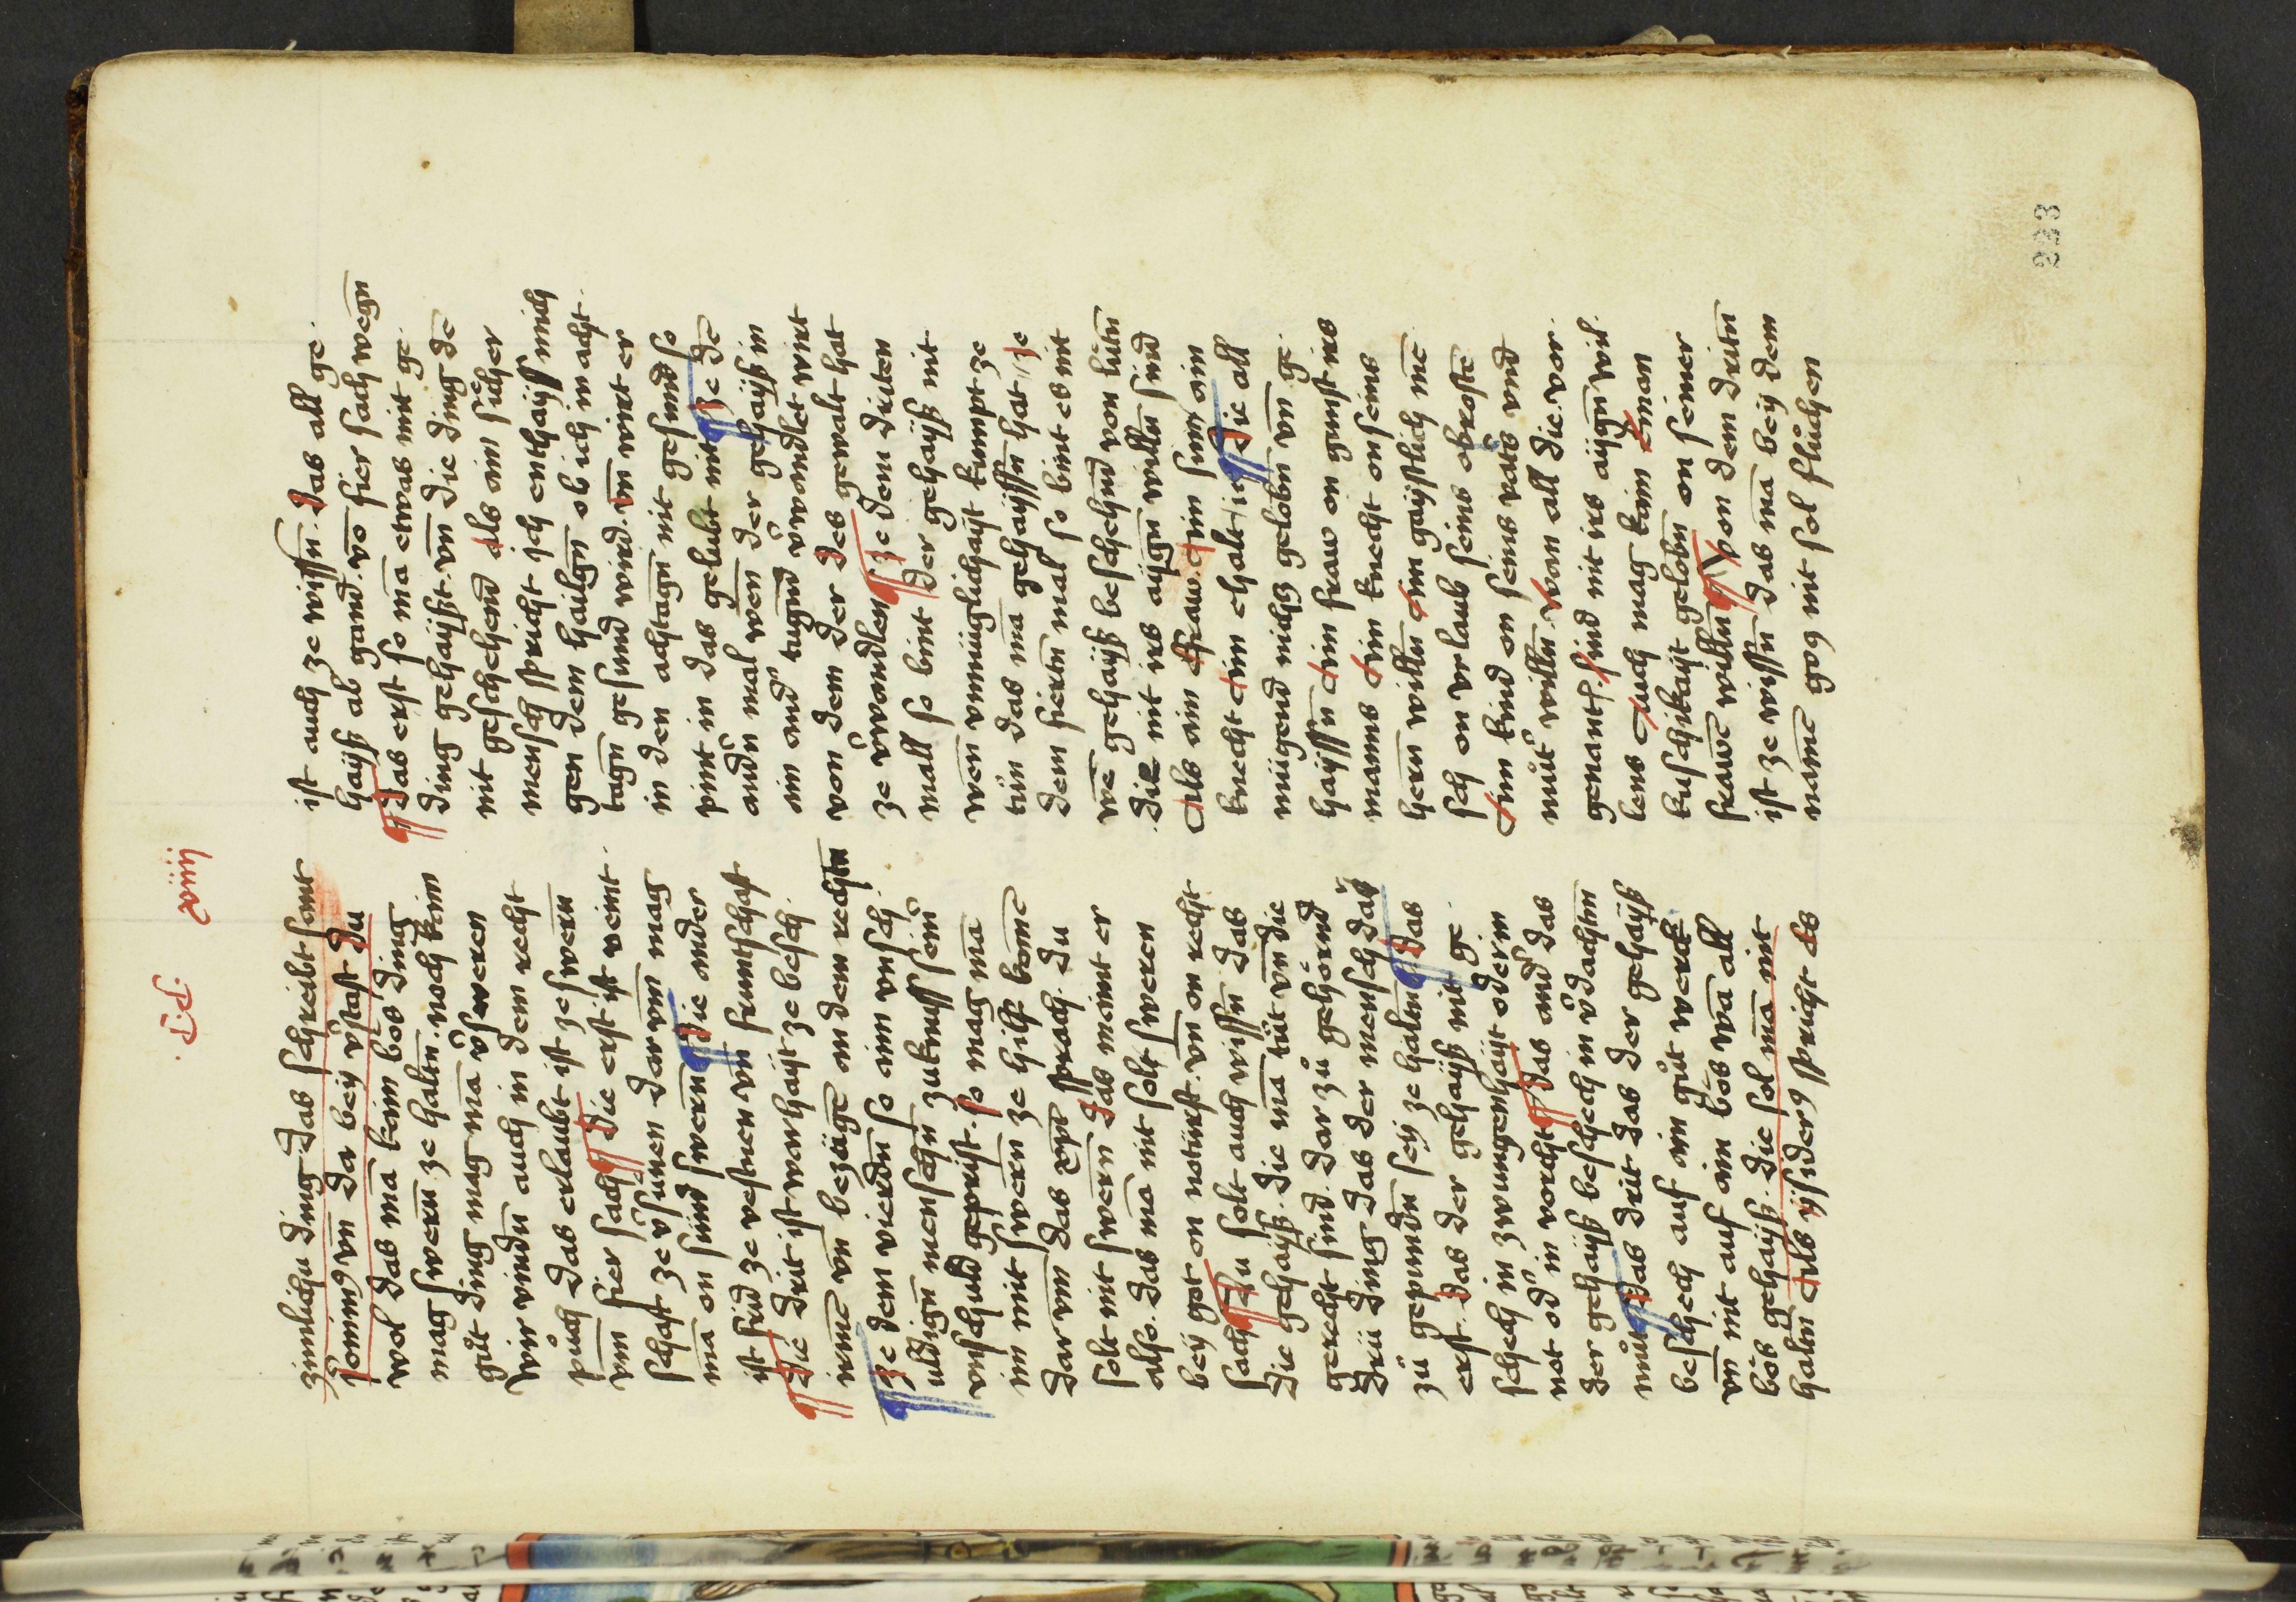 .C.C. xviiij
zimlichū ding das schreibt sant
somm9 vn̄ da beÿ v̓stast du
wol das ma̅ kain bȯ̈s ding
mag swern̄ ze halt̄n. noch kain
gu̇t ding mag ma̅ v̓sweren
Wir vindn̄ auch in dem recht
pu̇ch das erlaubt ist ze swern̄
vm̄ fier sach ¶ Die erst ist veint
schaft ze v̓sünen dar vm̄ mag
ma̅ on sünd swern̄ ¶ die ander
ist frid ze vestnen vn̄ fruntschaft
¶ Die drit ist warhaÿt ze besch
irme̅ vn̄ bezäge̅ an dem rechtn̄
¶ Ze dem vierdn̄ so aim vnsch
uldign̄ menschn̄ zuknuss sein̓
vnschuld geprist. so mag ma̅
im mit swern̄ ze hilff kome̅
Dar vm̄ das xp̄s sprach. du
solt nit swern̄ das maint er
also. das ma̅ nit solt sweren
beÿ got on notürft. vn̄ on recht
sach ¶ Du solt auch wissn̄ das
die gehaÿss. die ma̅ tüt vn̄ die
gerecht sind. dar zu̇ gehörnd
drü ding das der mensch das
zu̇ gepundn̄ seÿ ze haltn̄ ¶ Das
erst. das der gehaÿss mit ge
schech in zwungenhaÿt oder in
not od̓ in vorcht ¶ Das and̓ das
der gehaÿss beschech in v̓dachtm̄
mu̇t ¶ Das drit das der gehaÿss
beschech auf ain gu̇t werck
vn̄ nit auf ain bȯ̈s wa̅ all
bȯ̈s gehaÿss. die sol ma̅ nit
haltn̄ Als ÿsider9 spricht Es
ist auch ze wissn̄. Das all ge
haÿss ab gand. vo̅ fier sach wegn̄
¶ Das erst so ma̅ etwas mit ge
ding gehaÿsst. vn̄ die ding de̅
nit geschehend Als ain sicher
mensch spricht ich enthaÿss mich
gen dem hailgn̄ ob ich in acht
tagn̄ gesund wird. vn̄ wirt er
in den achtagn̄ nit gesund so
pint in das gelubt nit ¶ Ze de̅
andn̓ mal wen̄ der gehaÿss in
ain and̓ tugnd̄ v̓wandlet wirt
von dem der des gewalt hat
ze v̓wandlen ¶ Ze dem driten
mall so bint der gehaÿss nit
wen̄ vnmüglichaÿt kumpt ze
tün das ma̅ gehaÿssn̄ hat Ze
dem fierdn̄ mal so bint es nit
we̅ gehaÿss beschechnd von lütn̄
die nit irs aÿgn̄ willn̄ sind
Als ain fraw. Ain sun ain
knecht Ain ehalt ¶ Die all
mügend nichz gelobn̄ vn̄ ge
haÿssn̄ Ain fraw on gunst irs
manns Ain knecht on seins
hern̄ willn̄ Ain gaÿstlich me̅
sch on vrlaub seins obroste̅
Ain kind on seins vaters vnd
mu̇t̓ willn̄. von all die vor
genant. sind nit irs aÿgn̄ wil
lens Auch mag kain Eman
kuschikaÿt gelobn̄ on seiner
frawe̅ willn̄ ¶ Von dem dritn̄
ist ze wissn̄ das ma̅ beÿ dem
name̅ gotz nit sol fluchen
223